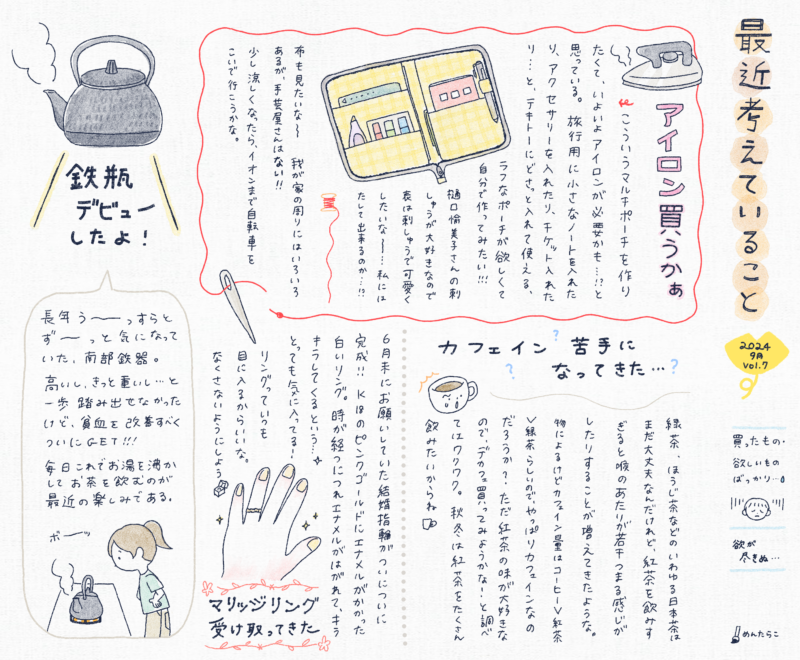 最近考えていること
2024
9月
vol.7
買ったもの・
欲しいもの
ばっかり…
欲が
尽きぬ…
めんたらこ
アイロン買うかぁ
こういうマルチポーチを作り
たくて、いよいよアイロンが必要かも…!?と
思っている。旅行用に小さなノートを入れた
り、アクセサリーを入れたり、チケット入れた
り…と、テキトーにどさっと入れて使える、
ラフなポーチが欲しくて
自分で作ってみたい!!!
樋口愉美子さんの刺
しゅうが大好きなので
表は刺しゅうで可愛く
したいな〜…私には
たして出来るのか…!?
布も見たいな〜 我が家の周りにはいろいろ
あるが、手芸屋さんはない!!
少し涼しくなったら、イオンまで自転車を
こいで行こうかな。
鉄瓶
デビュー
したよ!
長年う〜っすらと
ず〜っと気になって
いた、南部鉄器。
高いし、きっと重いし…と
一歩踏み出せなかった
けど、貧血を改善すべく
ついにGET!!!
毎日これでお湯を沸か
してお茶を飲むのが
最近の楽しみである。
ボーッ
カフェイン苦手に
なってきた…?
緑茶、ほうじ茶などのいわゆる日本茶は
まだ大丈夫なんだけれど、紅茶を飲みす
ぎると喉のあたりが若干つまる感じが
したりすることが増えてきたような。
物によるけどカフェイン量はコーヒー>紅茶
>緑茶らしいので、やっぱりカフェインなの
だろうか?ただ紅茶の味が大好きな
ので、デカフェ買ってみようかな!と調べ
てはワクワク。秋冬は紅茶をたくさん
飲みたいからね
6月末にお願いしていた結婚指輪がついについに
完成!!K18のピンクゴールドにエナメルがかかった
白いリング。時が経つにつれエナメルがはがれて、キラ
キラしてくるという…
とっても気に入ってる!
リングっていつも
目に入るからいいな。
なくさないようにしよう
マリッジリング
受け取ってきた